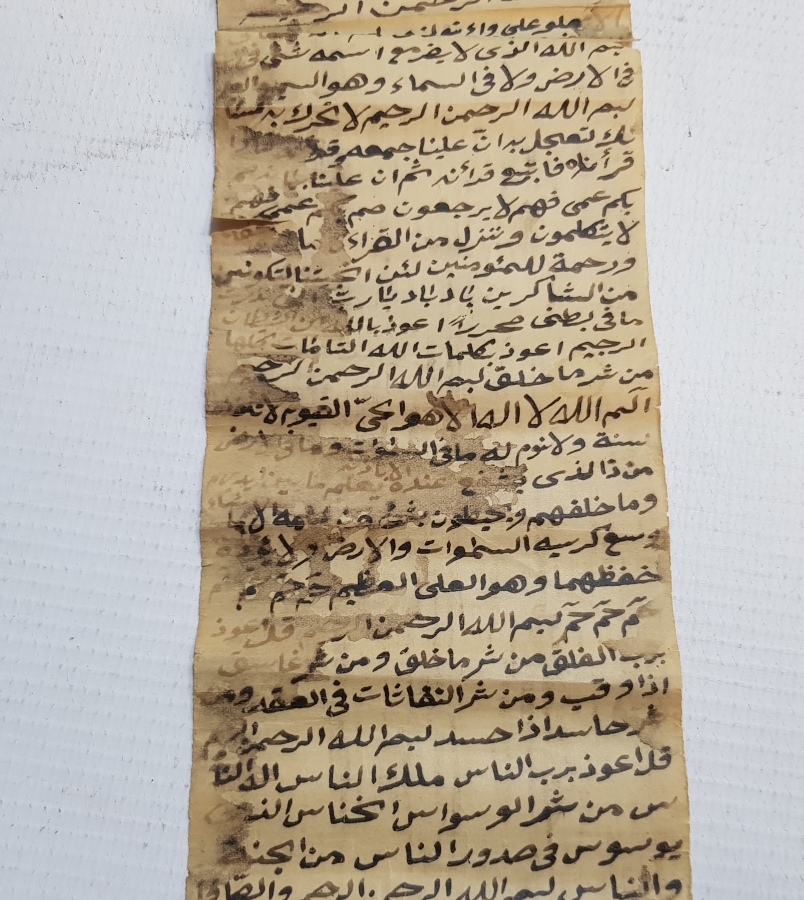 بسم الله الذى لا يضر مع اسمه شئ فى
فى الارض ولا فى السماء وهو السميع
لبسم الله الرحمن الرحيم لا تحرك به لسا
نك لتعجل به ان علينا جمعه وقر
قرأناه فاتبع قرأنه ثم ان علينا
بكم عمى فهم لا يرجعون صم بكم عمى فهم
لا يتكلمون وننزل من القراءن ما
ورحمة للمئومنين لئن انجيتنا لنكونن
من الشاكرين
ما فى بطنى محررا اعوذ بالله من الشيطان
الرجيم اعوذ بكلمات الله التامات كلها
من شر ما خلق لبسم الله الرحمن الرحيم
الم الله لا اله الا هو الحى القيوم لا تاخذه
سنة ولا نوم له ما فى السموات وما فى الارض
من ذا الذى يشفع عنده الا باذنه يعلم ما بين
وما خلفهم ولا يحيطون بشئ من علمه الا بما
وسع كرسيه السموات والارض ولا
حفظهما وهو العلى العظيم حم حم
حم حم حم لبسم الله الرحمن الرحيم قل اعوذ
برب الفلق من شر ما خلق ومن شر غاسق
اذا وقب ومن شر النفاثات فى العقد ومن
شر حاسد اذا حسد لبسم الله الرحمن الرحيم
قل اعوذ برب الناس ملك الناس اله النا
س من شر الوسواس الخناس الذى
يوسوس فى صدور الناس من الجنة
والناس لبسم الله الرحمن الرحيم والصافا